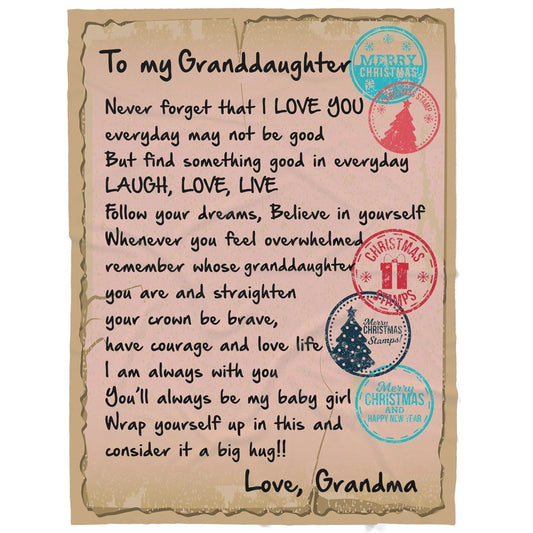 To my Granddaughter
Never forget that I LOVE YOU
everyday may not be good
But find something good in everyday
LAUGH, LOVE, LIVE
Follow your dreams, Believe in yourself
Whenever you feel overwhelmed
remember whose granddaughter
you are and straighten
your crown be brave,
have courage and love life
I am always with you
You'll always be my baby girl
Wrap yourself up in this and
consider it a big hug!!
Love, Grandma
MERRY
CHRISTMAS
CHRISTMAS STAMP
CHRISTMAS
STAMPS
Merry
CHRISTMAS
Stamps!
Merry
CHRISTMAS
AND
HAPPY NEW YEAR